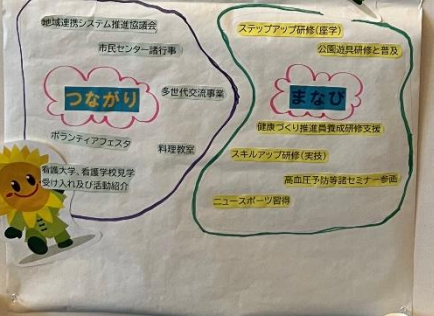 地域連携システム推進協議会
市民センター諸行事
つながり
多世代交流事業
ボランティアフェスタ
料理教室
看護大学、看護学校見学
受け入れ及び活動紹介
ステップアップ研修(座学)
公園遊具研修と普及
まなび
健康づくり推進員養成研修支援
スキルアップ研修(実技)
高血圧予防等諸セミナー参画
ニュースポーツ習得